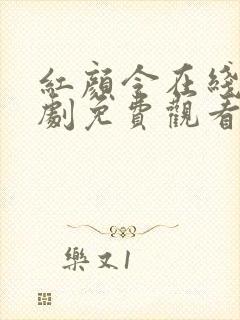 紅顏令在綫
劇免費觀看
樂又1